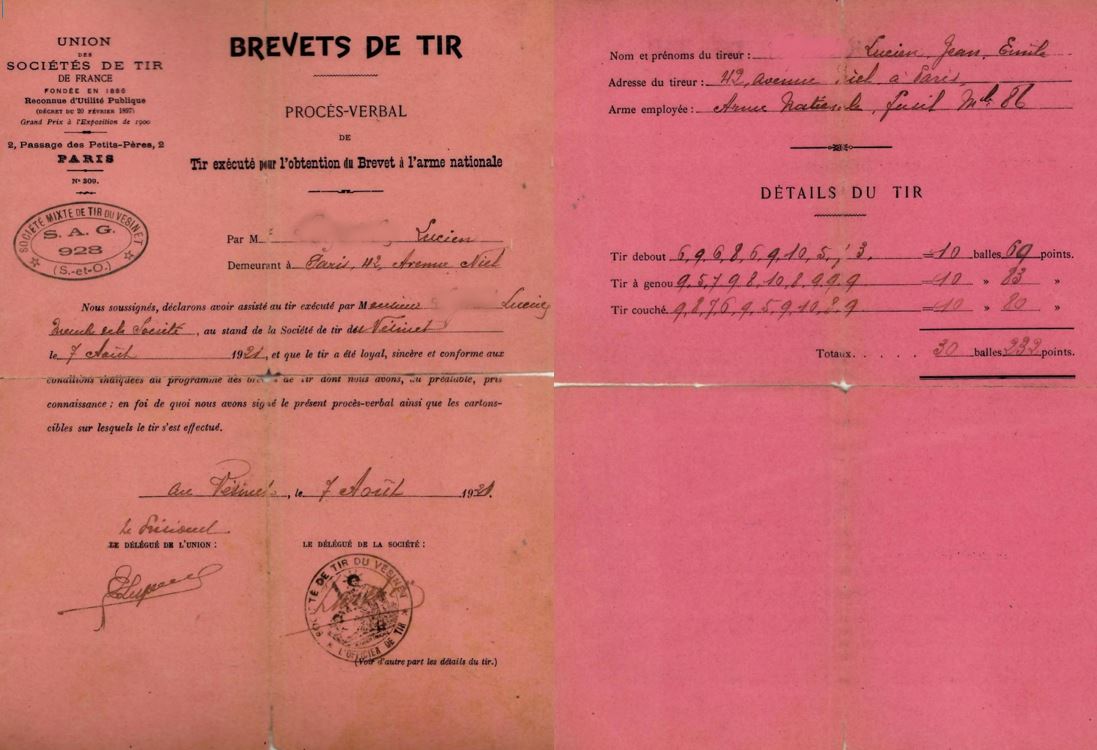 UNION
DES
SOCIÉTÉS DE TIR
DE FRANCE
FONDÉE EN 1886
Reconnue d'Utilité Publique
(DÉCRET DU 20 FÉVRIER 1897)
Grand Prix à l'Exposition de 1900
2, Passage des Petits-Pères, 2
PARIS
N° 209.
SOCIÉTÉ MIXTE DE TIR DU VESINET
S. A. G.
928
(S.-et-O.)
BREVETS DE TIR
PROCÈS-VERBAL
DE
Tir exécuté pour l'obtention du Brevet à l'arme nationale
Par M. Lucien
Demeurant à Paris, 42, Avenue Niel
Nous soussignés, déclarons avoir assisté au tir exécuté par Monsieur Lucien
de la Société, au stand de la Société de tir du Vésinet
le 7 Août 1921, et que le tir a été loyal, sincère et conforme aux
conditions indiquées au programme des brevets de tir dont nous avons, au préalable, pris
connaissance ; en foi de quoi nous avons signé le présent procès-verbal ainsi que les cartons-
cibles sur lesquels le tir s'est effectué.
au Vésinet, le 7 Août 1921.
le Président
LE DÉLÉGUÉ DE L'UNION :
LE DÉLÉGUÉ DE LA SOCIÉTÉ :
DE TIR DU VESINET
L'OFFICIER DE TIR
(Voir d'autre part les détails du tir.)
Nom et prénoms du tireur : Lucien, Jean, Emile
Adresse du tireur : 42, avenue Niel à Paris
Arme employée : Arme Nationale, fusil Mle 86
DÉTAILS DU TIR
Tir debout 6, 9, 6, 8, 6, 9, 10, 5, 3. = 10 balles 69 points.
Tir à genou 9, 5, 7, 9, 8, 10, 8, 9, 9, 9 = 10 » 83 »
Tir couché 9, 8, 7, 6, 9, 5, 9, 10, 8, 9 = 10 » 80 »
Totaux. . . . . 30 balles 232 points.